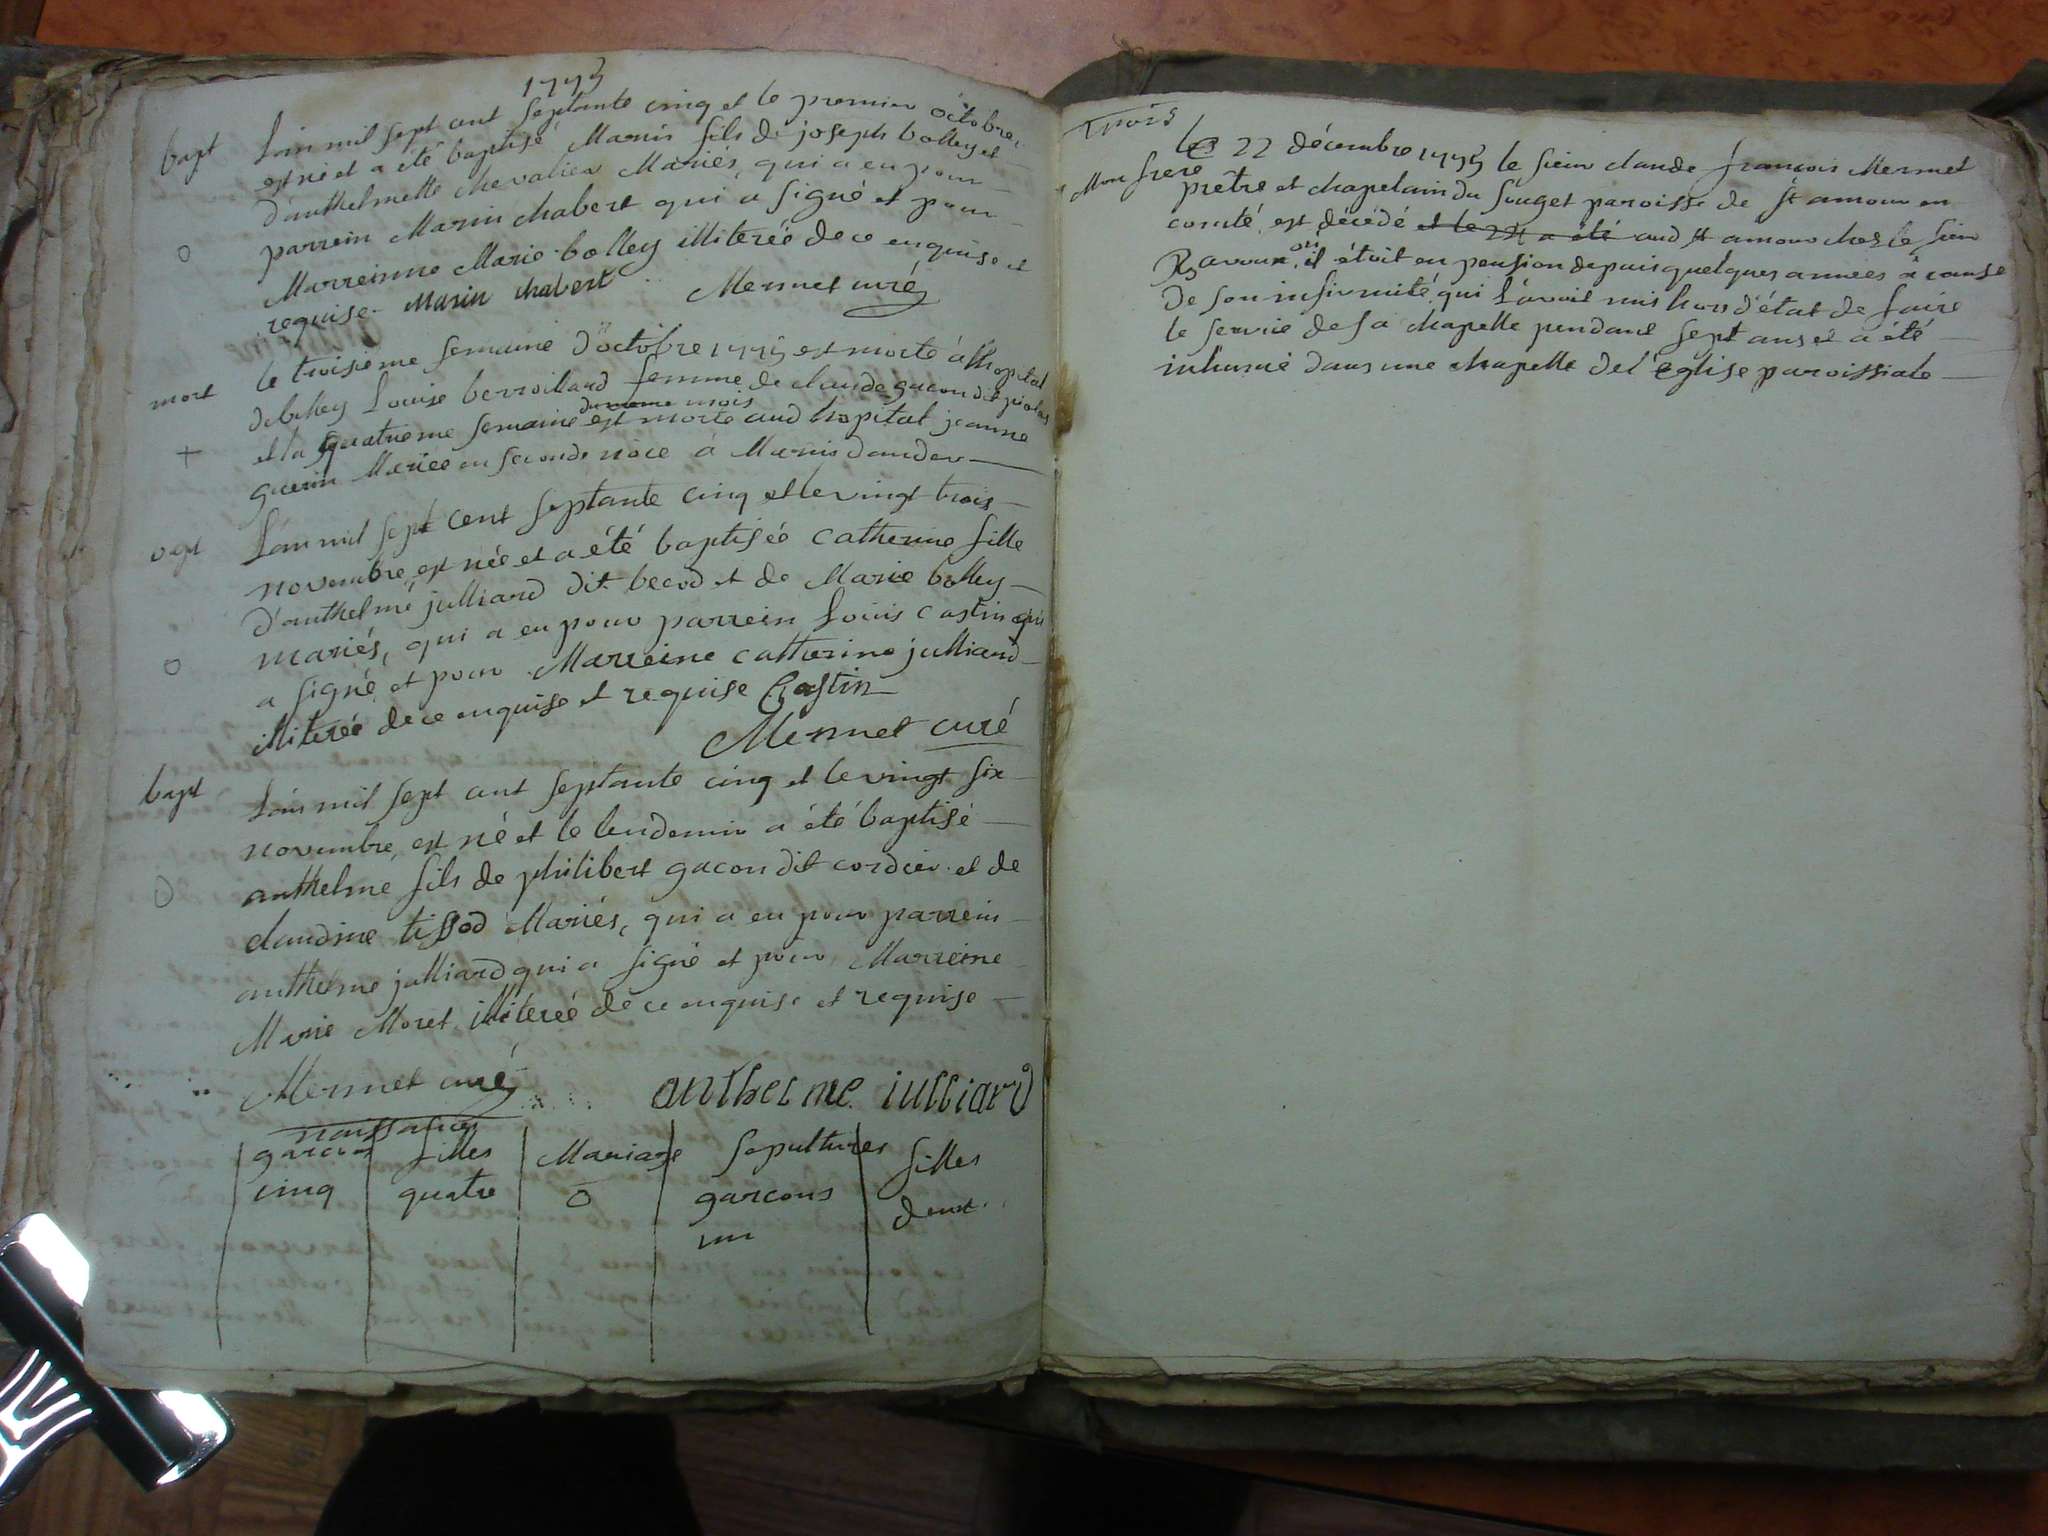 1775
bapt L'an mil sept cent septante cinq et le premier octobre
est né et a été baptisé Marin fils de joseph bolley et
d'anthelmette chevalier Mariés, qui a eu pour
o parrein Marin chabert qui a signé et pour
Marreinne Marie bolley illiterée de ce enquise et
requise. Marin chabert Mermet curé
mort le troisieme semaine d'octobre 1775 est morte à l'hopital
de belley Louise berroillard femme de claude gacon dit
et la quatrieme semaine du meme mois est morte aud hopital jeanne
+ guerin Mariée en seconde nôce à Marin
bapt L'an mil sept cent septante cinq et le vingt trois
novembre, est née et a été baptisée Catherine fille
d'anthelme julliard dit becod et de Marie bolley
o mariés, qui a eu pour parrein Louis Castin qui
a signé et pour Marreine Catherine julliard
illiterée de ce enquise et requise Castin
Mermet curé
bapt L'an mil sept cent septante cinq et le vingt six
novembre, est né et le lendemin a été baptisé
o anthelme fils de philibert gacon dit cordier et de
claudine tissod Mariés, qui a eu pour parrein
anthelme julliard qui a signé et pour Marreine
Marie Moret illiterée de ce enquise et requise
Mermet curé anthelme iulliard
naissances
garcons filles Mariage Sepultures filles
cinq quatre 0 garcons deux
un
trois
le 22 décembre 1775 le sieur claude françois Mermet
Mon frere prêtre et chapelain du Souget paroisse de St amour en
comté, est décédé et le 24 a été aud St amour chez le sieur
Ravoux, où il étoit en pension depuis quelques années à cause
de son infirmité, qui l'avoit mis hors d'état de faire
le service de sa chapelle pendant sept ans et a été
inhumé dans une chapelle de l'église paroissiale